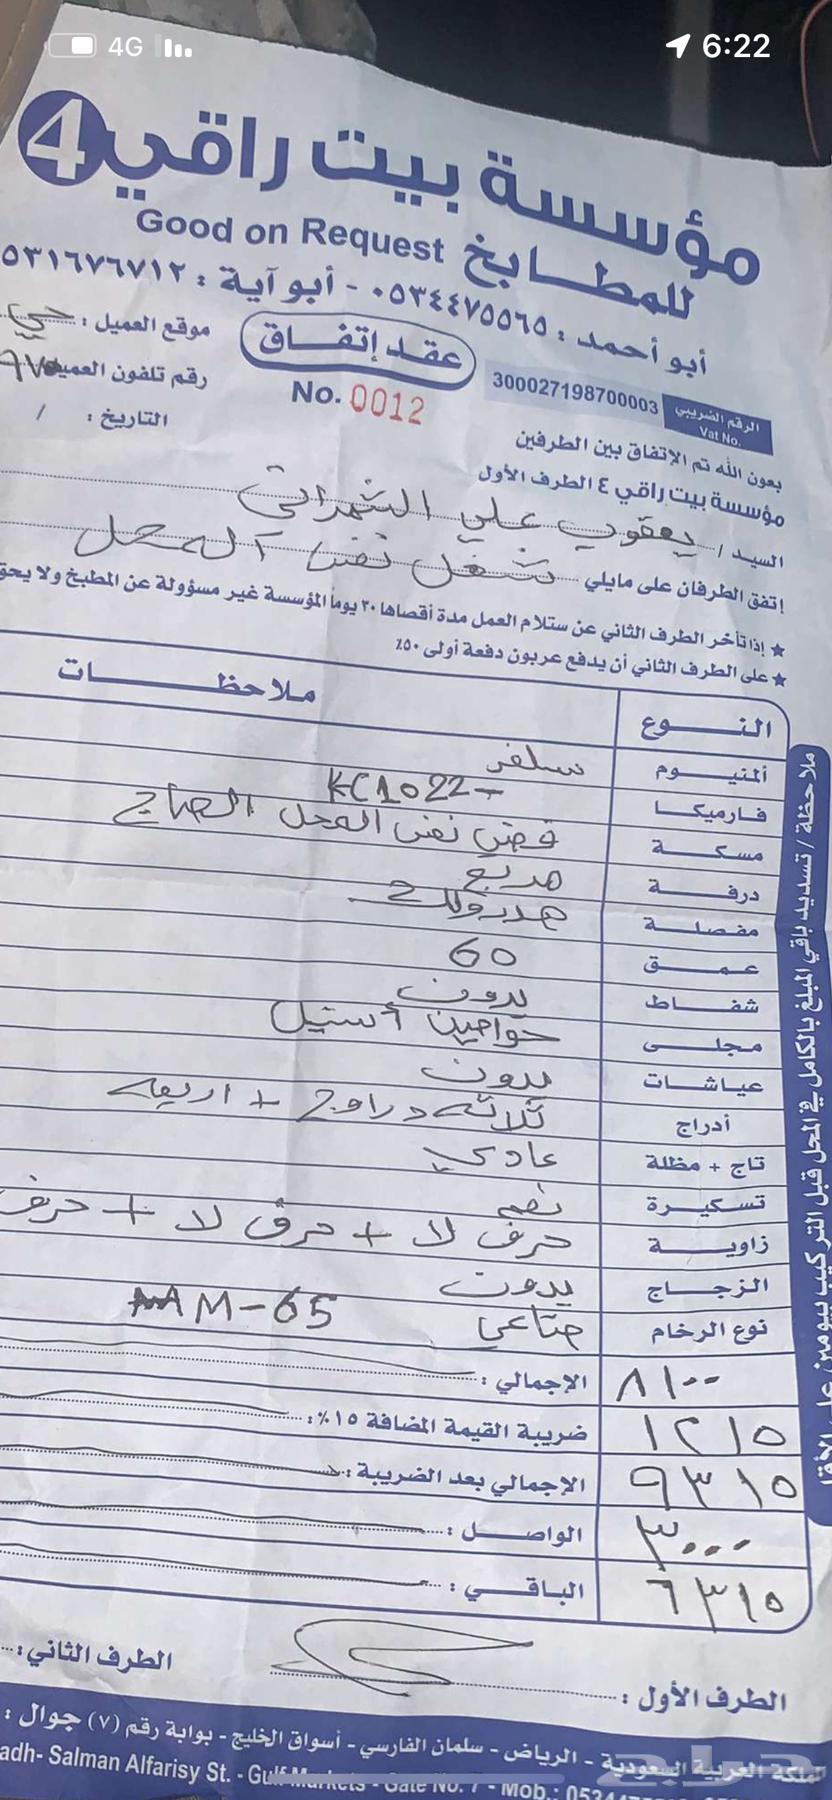 4G 6:22
مؤسسة بيت راقي 4
للمطابخ Good on Request
أبو أحمد : ٠٥٣٤٤٧٥٥٦٥ - أبو آية : ٥٣١٦٧٦٧١٢
عقد إتفاق
موقع العميل : حي
رقم تلفون العميل
التاريخ : /
No. 0012
الرقم الضريبي 300027198700003
Vat No.
بعون الله تم الإتفاق بين الطرفين
مؤسسة بيت راقي ٤ الطرف الأول
السيد / يعقوب علي الشهراني
إتفق الطرفان على مايلي شغل نفس المحل
★ إذا تأخر الطرف الثاني عن ستلام العمل مدة أقصاها ٣٠ يوما المؤسسة غير مسؤولة عن المطبخ ولا يحق
★ على الطرف الثاني أن يدفع عربون دفعة أولى ٥٠٪
النوع ملاحظات
ألمنيوم سلفر
فارميكا KC1022-
مسكة فضي نفس المحل
درفة مربع
مفصلة هدرولك
عمق 60
شفاط بدون
مجلى حوضين أستيل
عياشات بدون
أدراج ثلاثه دراوج + اربعه
تاج + مظلة عادي
تسكيرة نعم
زاوية حرف لا + حرف لا + حرف
الزجاج بدون
نوع الرخام صناعي AM-65
الإجمالي : ٨١٠٠
ضريبة القيمة المضافة ١٥٪ : ١٢١٥
الإجمالي بعد الضريبة : ٩٣١٥
الواصل : ٣٠٠٠
الباقي : ٦٣١٥
ملاحظة / تسديد باقي المبلغ بالكامل في المحل قبل التركيب بيومين على الأقل
الطرف الأول : الطرف الثاني :
المملكة العربية السعودية - الرياض - سلمان الفارسي - أسواق الخليج - بوابة رقم (٧) جوال :
adh- Salman Alfarisy St. - Gulf Markets - Gate No. 7 - Mob.:
حراج